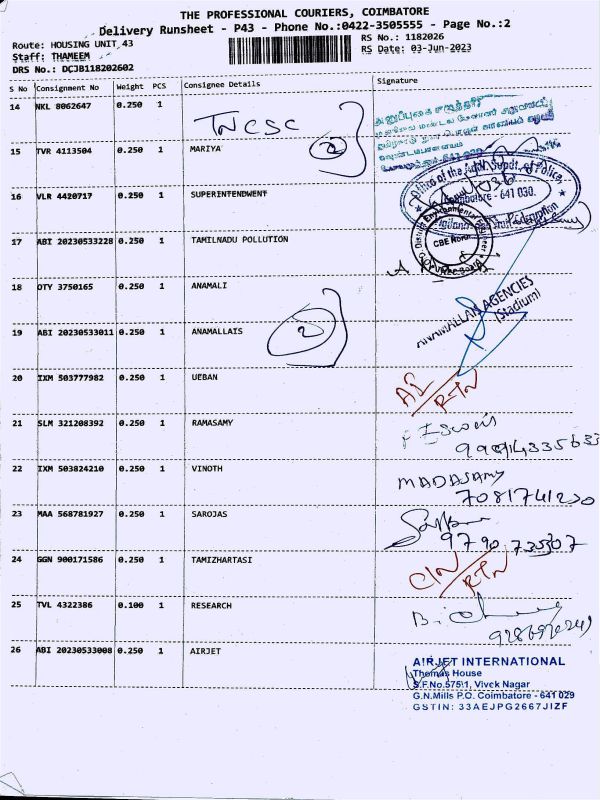 THE PROFESSIONAL COURIERS, COIMBATORE
Delivery Runsheet - P43 - Phone No.:0422-3505555 - Page No.:2
Route: HOUSING UNIT 43
Staff: THAMEEM
DRS No.: DCJB118202602
RS No.: 1182026
RS Date: 03-Jun-2023
S No Consignment No Weight PCS Consignee Details Signature
14 NKL 8062647 0.250 1
TNCSC
2
15 TVR 4113504 0.250 1 MARIYA
16 VLR 4420717 0.250 1 SUPERINTENDWENT
Office of the Addl. Supdt. of Police,
Coimbatore - 641 030.
17 ABI 20230533228 0.250 1 TAMILNADU POLLUTION
District Environmental Engineer
CBE North
18 OTY 3750165 0.250 1 ANAMALI
ANAMALLAI AGENCIES
(Stadium)
2
19 ABI 20230533011 0.250 1 ANAMALLAIS
20 IXM 503777982 0.250 1 UEBAN
RTN
21 SLM 321208392 0.250 1 RAMASAMY
22 IXM 503824210 0.250 1 VINOTH
MADASAMY
7081741200
23 MAA 568781927 0.250 1 SAROJAS
9790 735307
24 GGN 900171586 0.250 1 TAMIZHARTASI
C/N
RTN
25 TVL 4322386 0.100 1 RESEARCH
26 ABI 20230533008 0.250 1 AIRJET
AIRJET INTERNATIONAL
Thomas House
S.F.No.575\1, Vivek Nagar
G.N.Mills P.O. Coimbatore - 641 029
GSTIN: 33AEJPG2667J1ZF